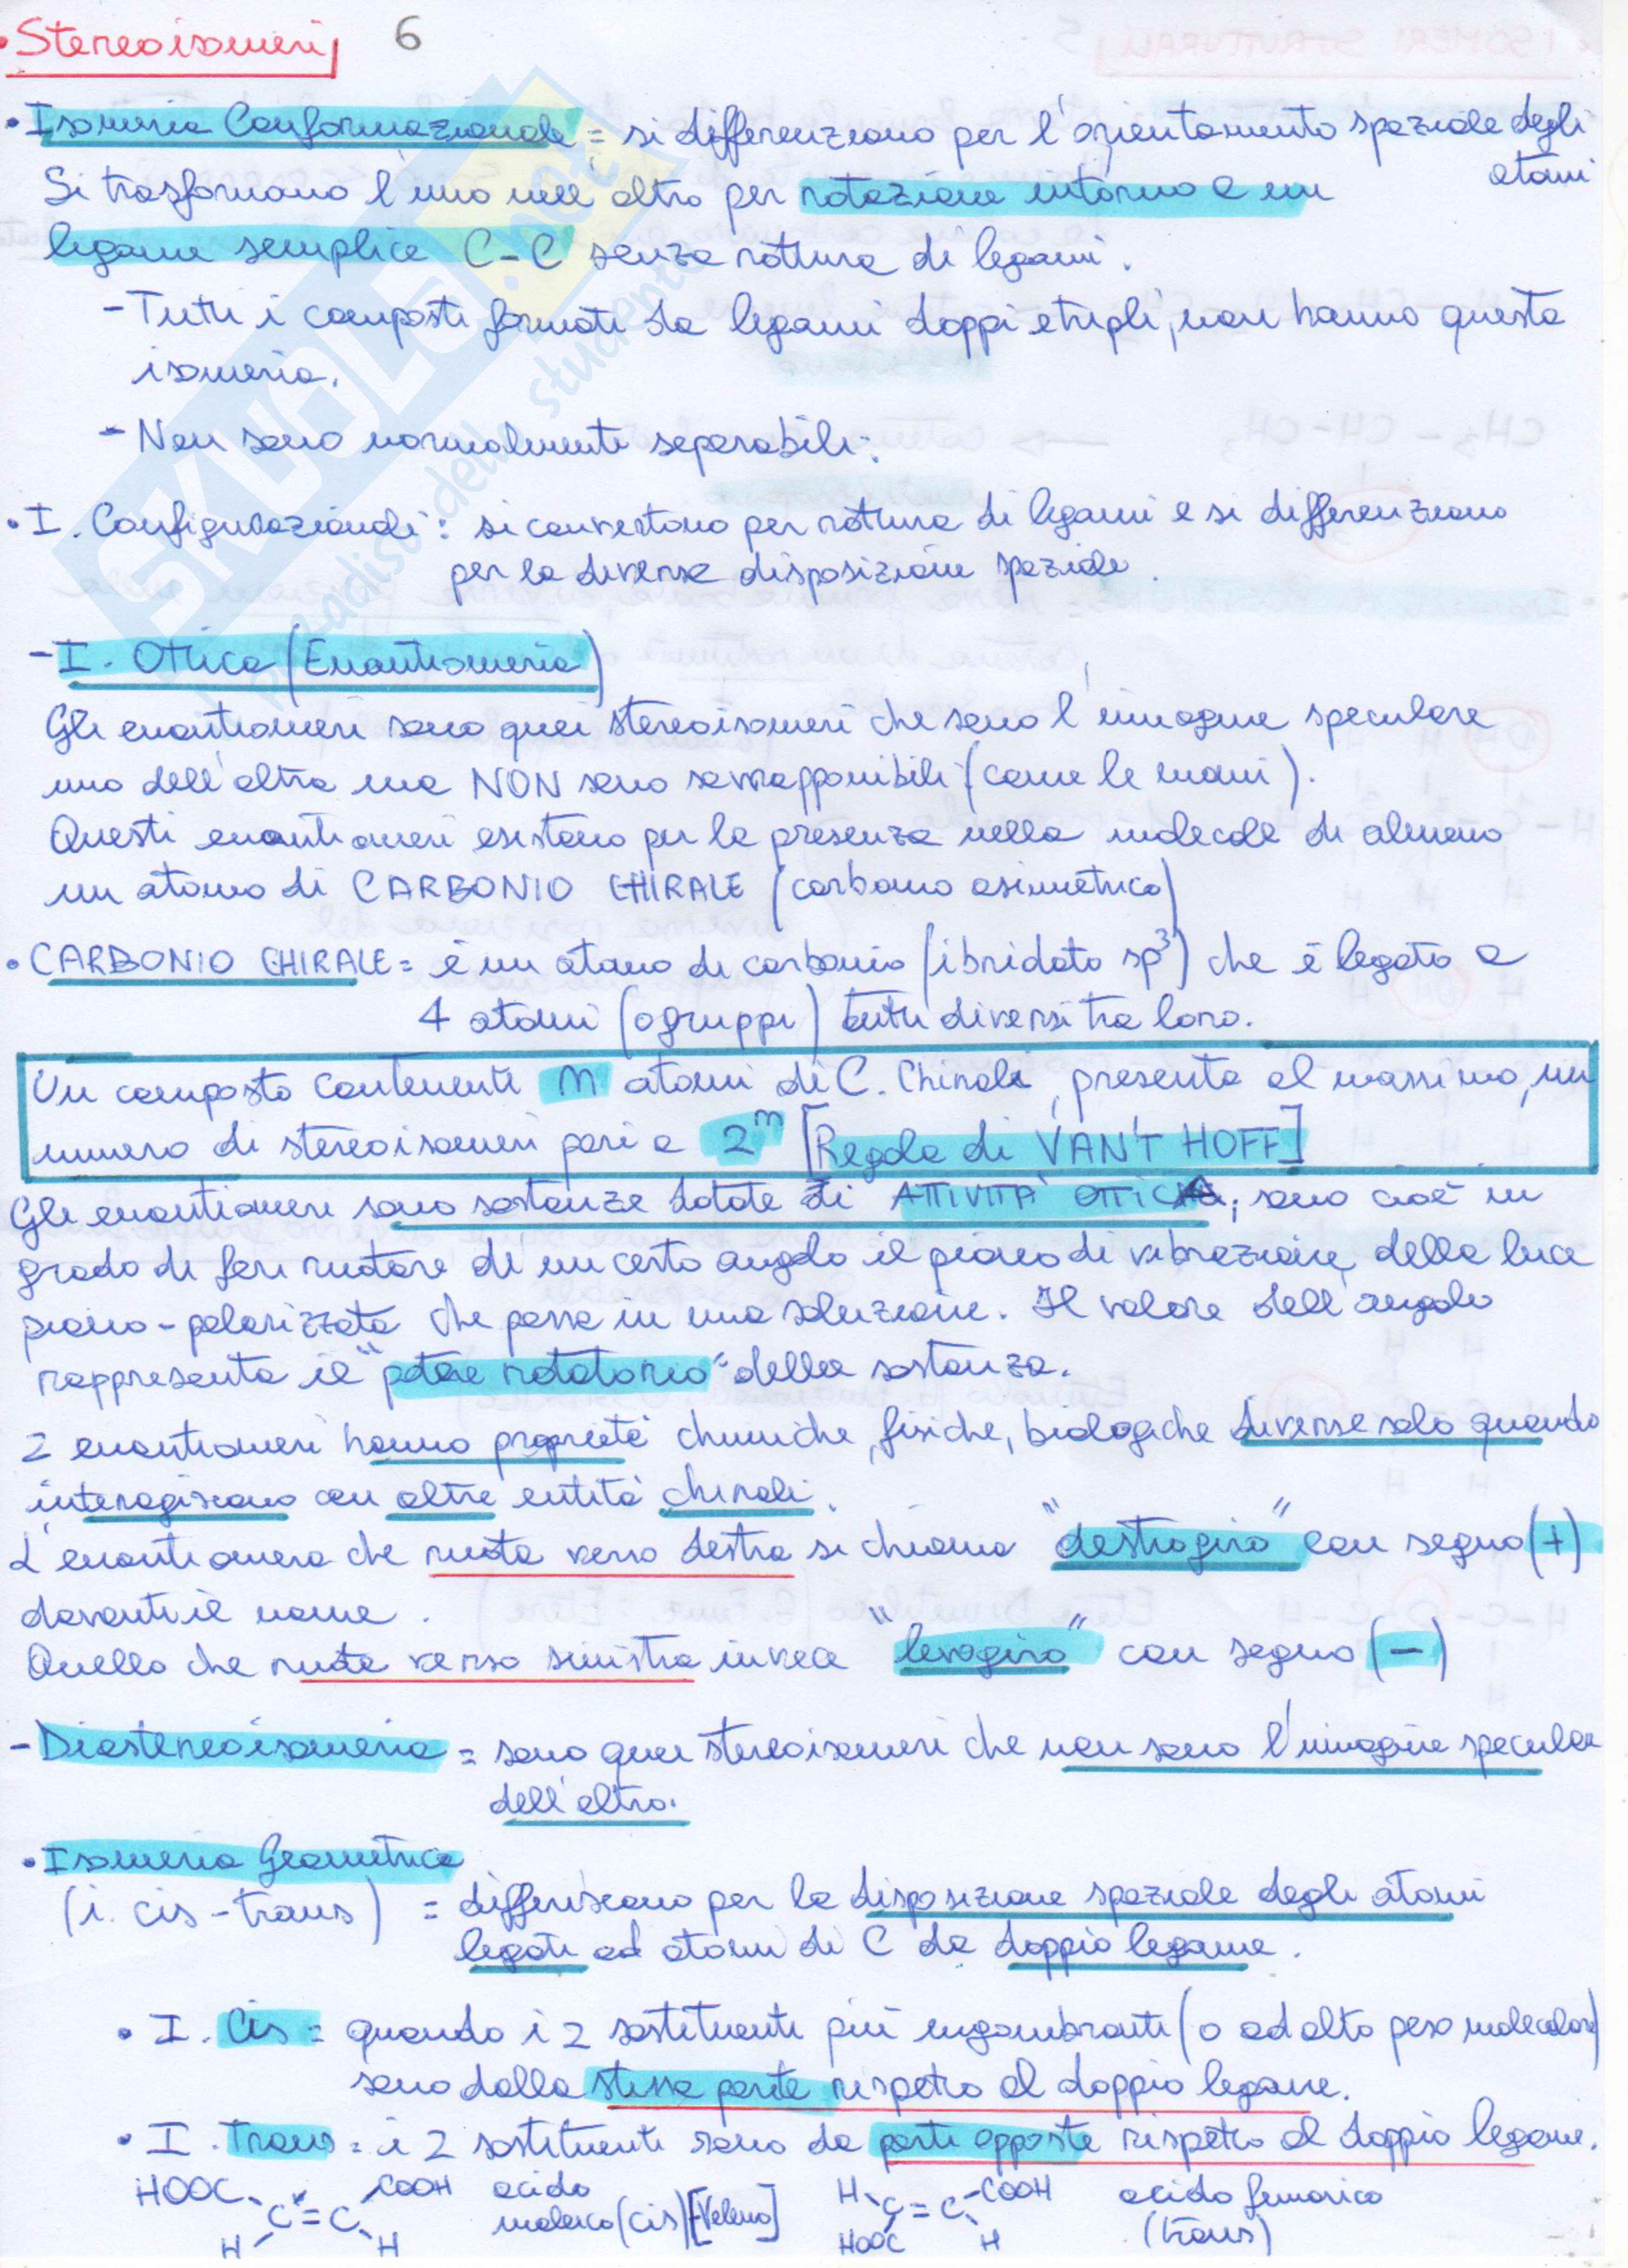 • Stereoisomeri 6
• Isomeria Conformazionale = si differenziano per l'orientamento spaziale degli atomi
Si trasformano l'uno nell'altro per rotazione intorno a un
legame semplice C-C senza rottura di legami.
- Tutti i composti formati da legami doppi e tripli, non hanno questa
isomeria.
- Non sono normalmente separabili.
• I. Configurazionali: si convertono per rottura di legami e si differenziano
per la diversa disposizione spaziale.
- I. Ottica (Enantiomeria)
Gli enantiomeri sono quei stereoisomeri che sono l'immagine speculare
uno dell'altro ma NON sono sovrapponibili (come le mani).
Questi enantiomeri esistono per la presenza nella molecola di almeno
un atomo di CARBONIO CHIRALE (carbonio asimmetrico)
• CARBONIO CHIRALE = è un atomo di carbonio (ibridato sp³) che è legato a
4 atomi (o gruppi) tutti diversi tra loro.
Un composto contenente n atomi di C. Chirale, presenta al massimo, un
numero di stereoisomeri pari a 2ⁿ [Regola di VAN'T HOFF]
Gli enantiomeri sono sostanze dotate di ATTIVITÀ OTTICA, sono cioè in
grado di far ruotare di un certo angolo il piano di vibrazione della luce
piano-polarizzata che passa in una soluzione. Il valore dell'angolo
rappresenta il "potere rotatorio" della sostanza.
2 enantiomeri hanno proprietà chimiche, fisiche, biologiche diverse solo quando
interagiscono con altre entità chirali.
L'enantiomero che ruota verso destra si chiama "destrogiro" con segno (+)
davanti il nome.
Quello che ruota verso sinistra invece "levogiro" con segno (-)
- Diastereoisomeria = sono quei stereoisomeri che non sono l'immagine speculare
dell'altro.
• Isomeria Geometrica
(i. cis-trans) = differiscono per la disposizione spaziale degli atomi
legati ad atomi di C da doppio legame.
• I. Cis = quando i 2 sostituenti più ingombranti (o ad alto peso molecolare)
sono dalla stessa parte rispetto al doppio legame.
• I. Trans = i 2 sostituenti sono da parti opposte rispetto al doppio legame.
HOOC COOH acido H COOH acido fumarico
C=C maleico (cis) [Veleno] C=C (trans)
H H HOOC H
SKUOLA.net
il paradiso dello studente